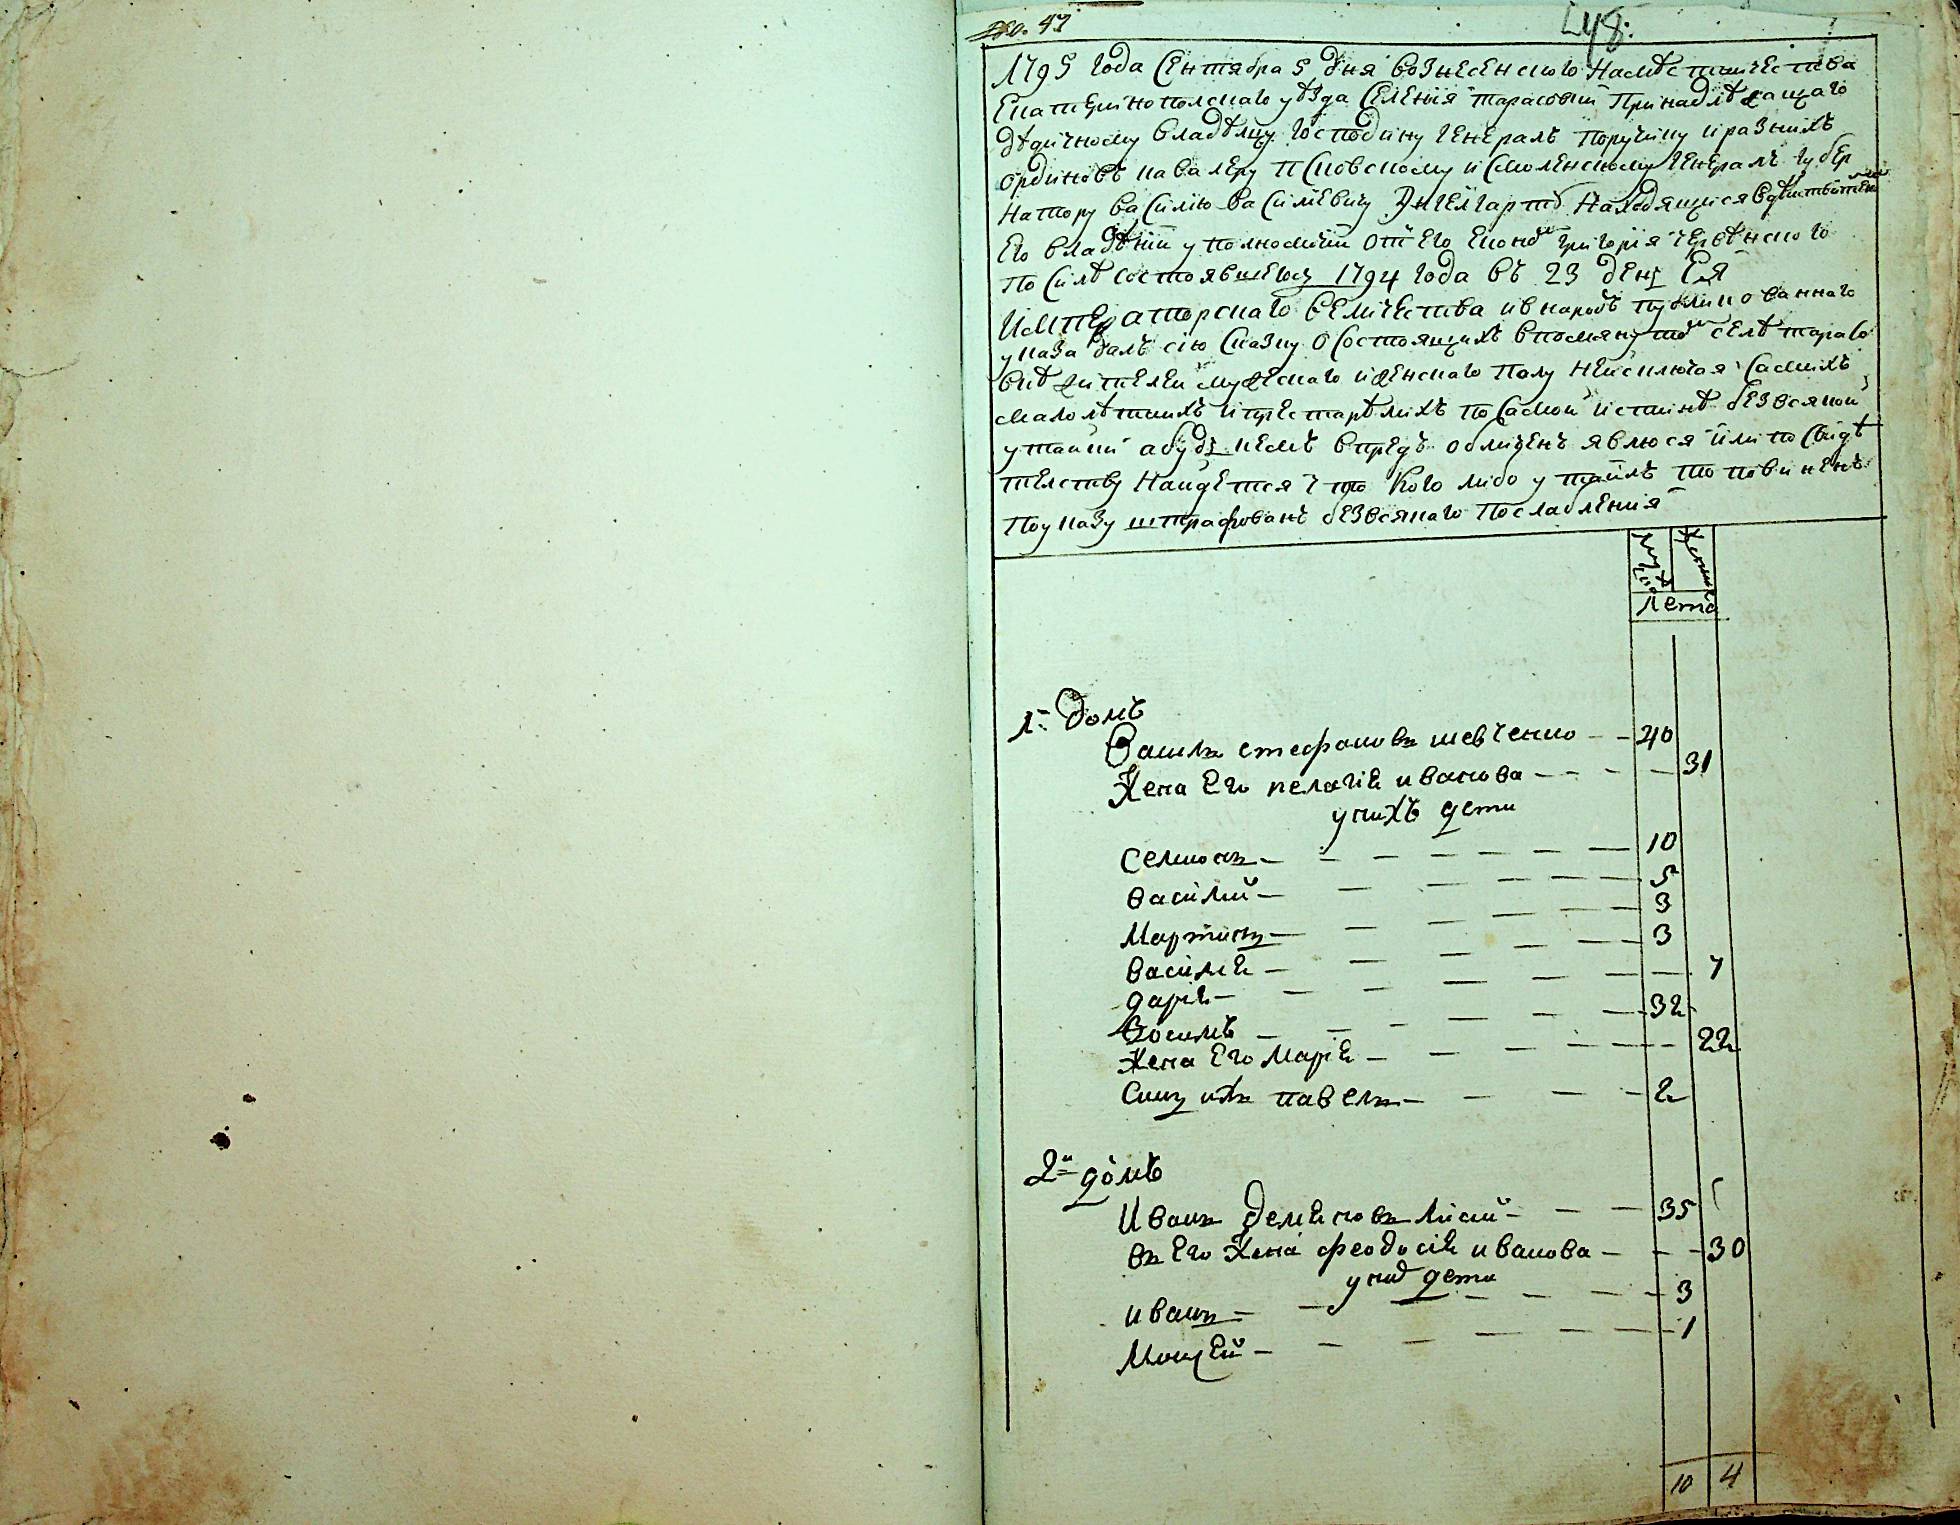 No. 47
48.
1795 года Сентября 5 дня вознесенскаго наместничества
Екатеринополскаго уѣзда Селенія тарасовки Принадлѣжащаго
дѣдичному владѣлцу господину генералъ поручику и разныхъ
ординовъ кавалеру псковскому и смоленскому генералъ губер
натору василію василіевичу Энгелгарту находящися в действителном
его владѣніи уполномочій отъ его економъ григорія
по силѣ состоявшегосъ 1794 года въ 23 день Ея
Императорскаго величества и в народъ публикованнаго
указа далъ сію сказку о состоящихъ в помянутомъ селѣ тарасо
вкѣ жителей мужескаго и женскаго полу неисключая самихъ
малолѣтнихъ и престарѣлихъ по самой истинѣ безвсякой
утайки абуде кемъ впредъ обличенъ явлюся или по свидѣ
телству найдется что кого либо утаилъ то повиненъ
по указу штрафованъ безвсякаго послабленія
Мужеск
Женска
Лета
1й домъ
Василь стефановъ шевченко — — 40
Жена Его пелагіе иванова — — — — 31
у нихъ дети
Семионъ — — — — — — — 10
василій — — — — — — 5
Мартинъ — — — — — 3
василіе — — — — — 3
даріе — — — — — — 7
— — — — — 32
Жена Его Маріе — — — — — 22
Синъ ихъ павелъ — — — — 2
2й домъ
Иванъ Демяновъ Лисій — — — 35
въ Его Жена феодосіе иванова — — — 30
у нихъ дети
иванъ — — — — — — 3
Моисей — — — — — — 1
10 4